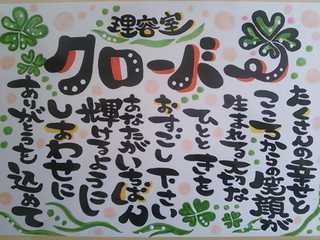 理容室
クローバー
たくさんの幸せと
こころからの笑顔が
生まれる大切な
ひとときを
おすごし下さい
あなたがいちばん
輝けるように
しあわせに
ありがとうを込めて